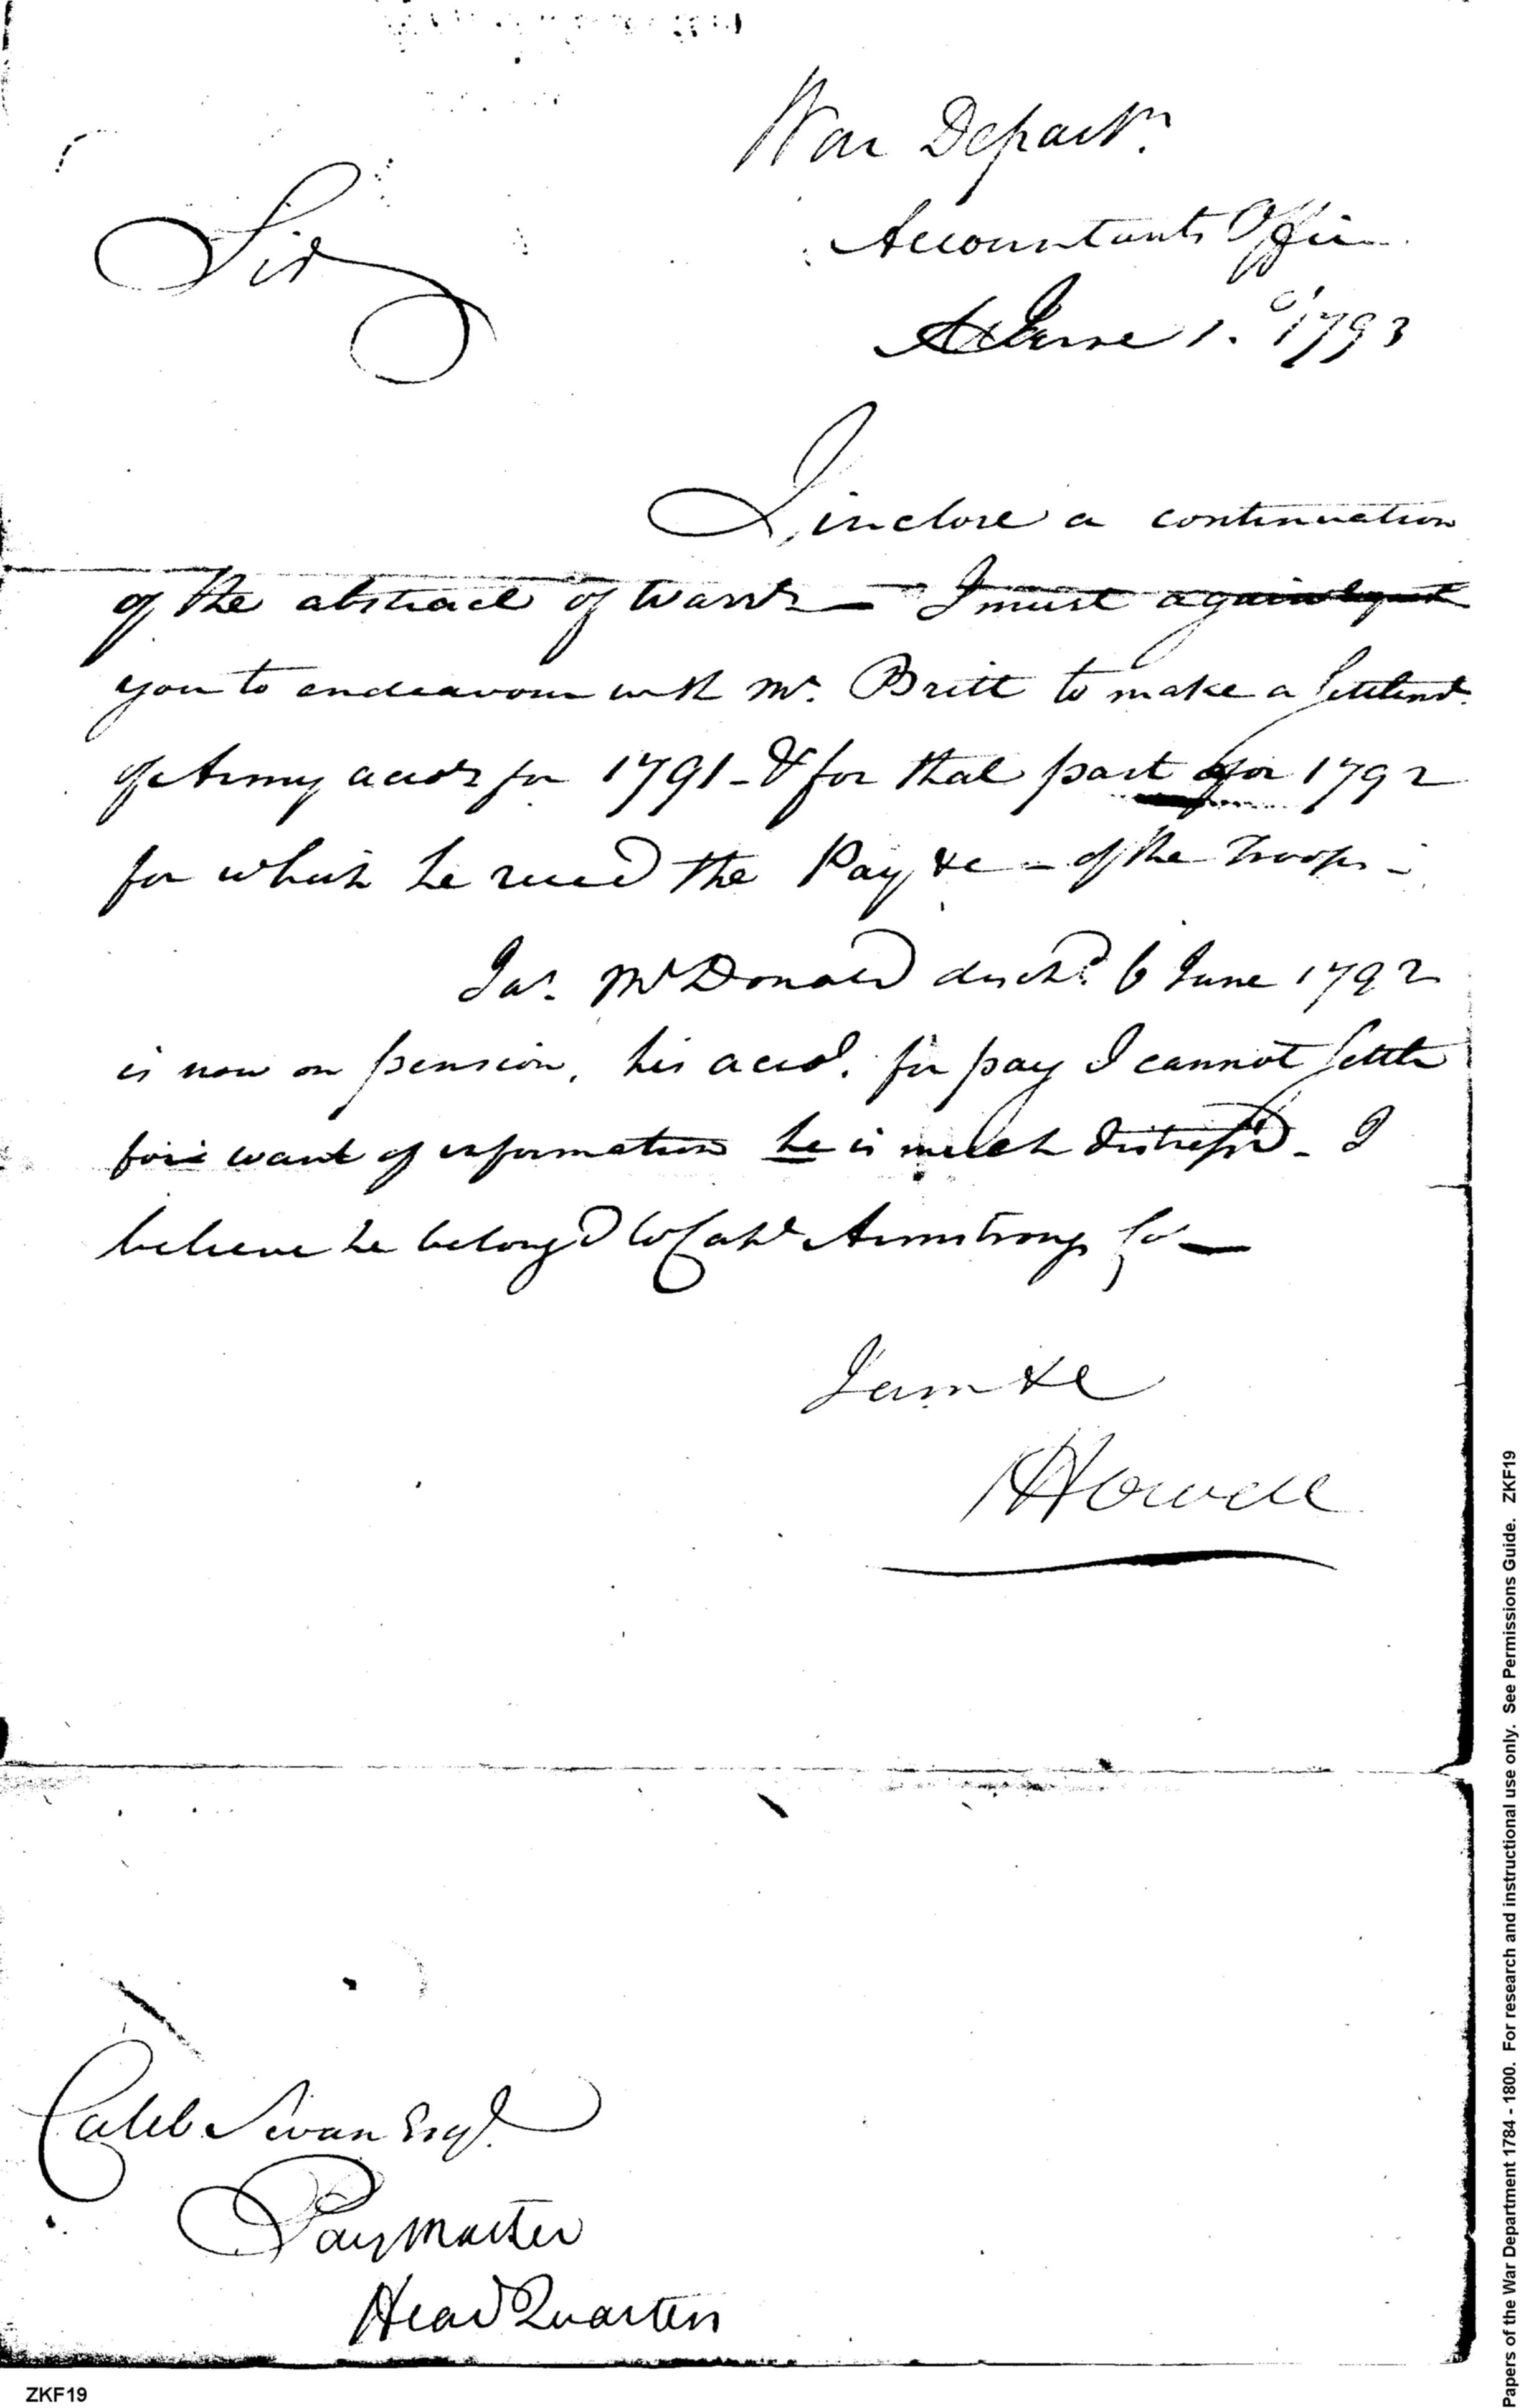 War Departm.
Sir
Accountants Office
June 1. 1793
I inclose a continuation
of the abstract of Warrts — I must again request
you to endeavour with Mr. Britt to make a Settlemt.
of Army accots for 1791 - & for that part of for 1792
for which he recd the Pay &c - of the Troops -
Jas. McDonald dischd. 6 June 1792
is now on pension, his accot. for pay I cannot settle
for want of information he is much distress'd - I
believe he belong'd to Capt Armstrongs Co —
I am &c
Howell
Caleb Swan Esqr.
PayMaster
Head Quarters
ZKF19
Papers of the War Department 1784 - 1800. For research and instructional use only. See Permissions Guide. ZKF19